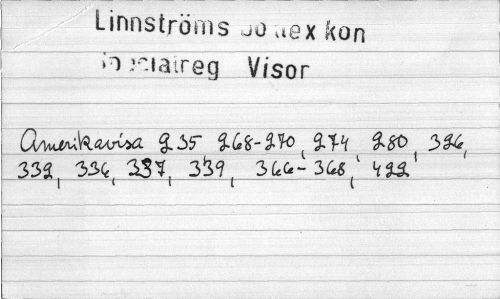 Linnströms
Visor
Amerikavisa 235 268-270, 274, 280, 326,
332, 336, 337, 339, 366-368, 422